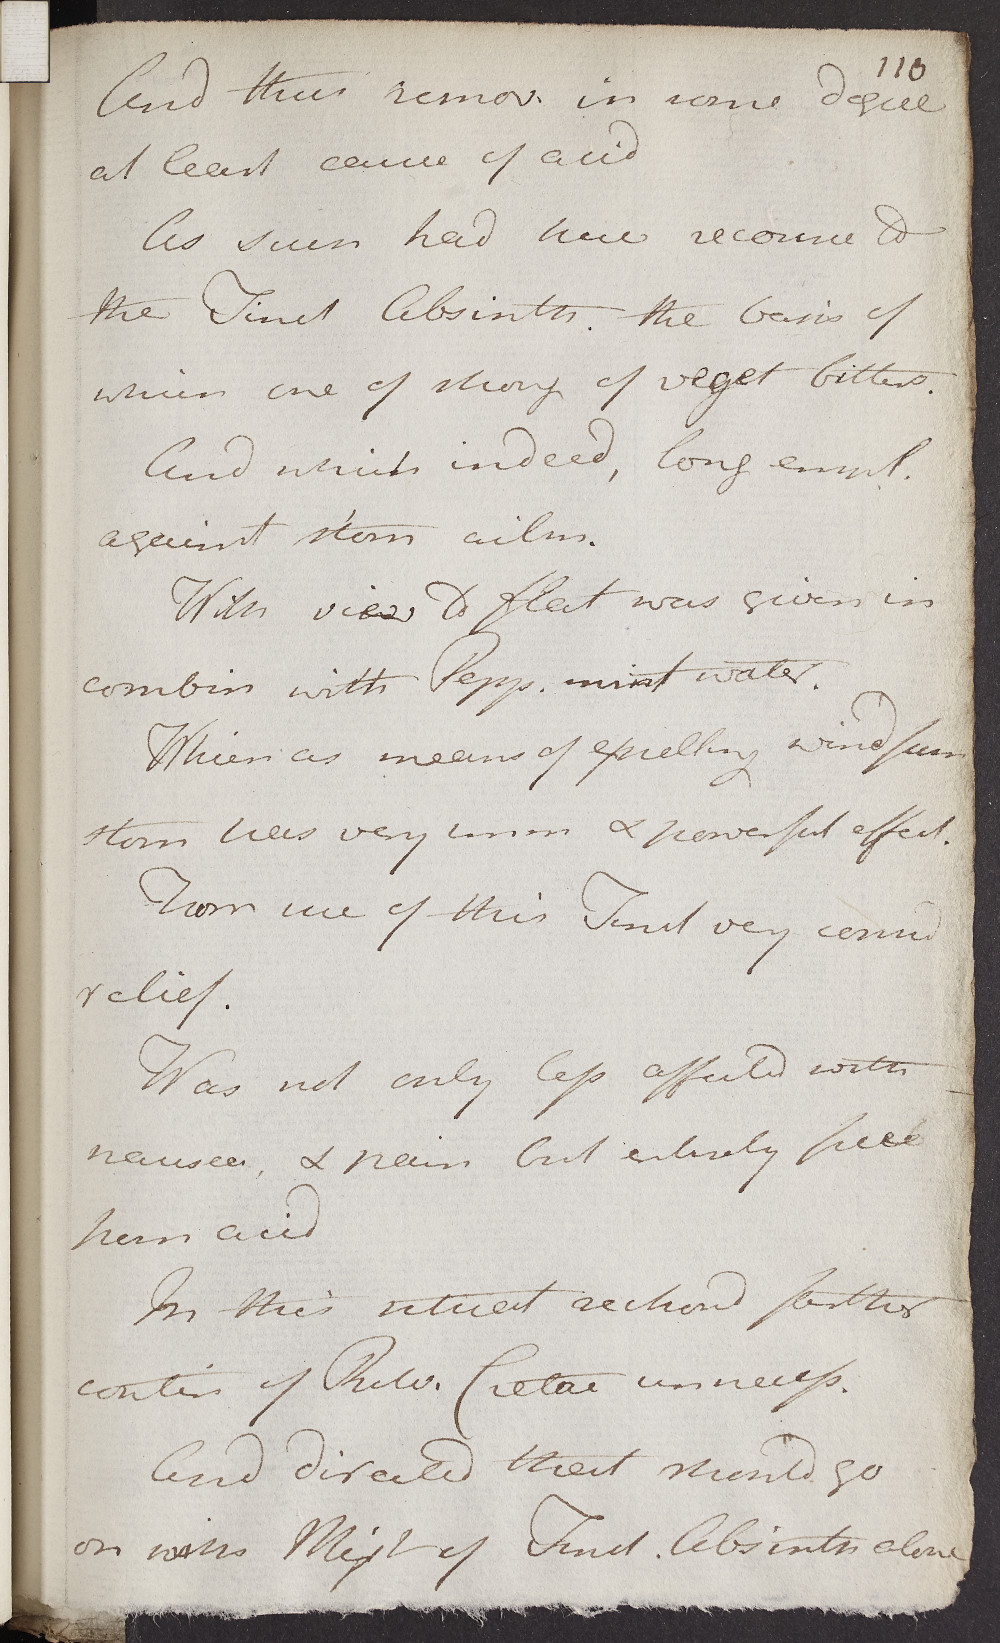 110
And thus remov. in some degree
at least cause of acid
As such had here recourse to
the Tinct Absinth. the basis of
which one of strong of veget bitters.
And which indeed, long empl.
against stom ailm.
With view to flat was given in
combin with Pepp. mint water.
Which as means of expelling wind from
stom has very imm & powerful effect.
From use of this Tinct very consid
relief.
Was not only less affected with
nausea, & pain but entirely free
from acid
In this situat reckon'd farther
contin of Pulv. Cretae unnecess.
And directed that should go
on with Mixt of Tinct. Absinth alone